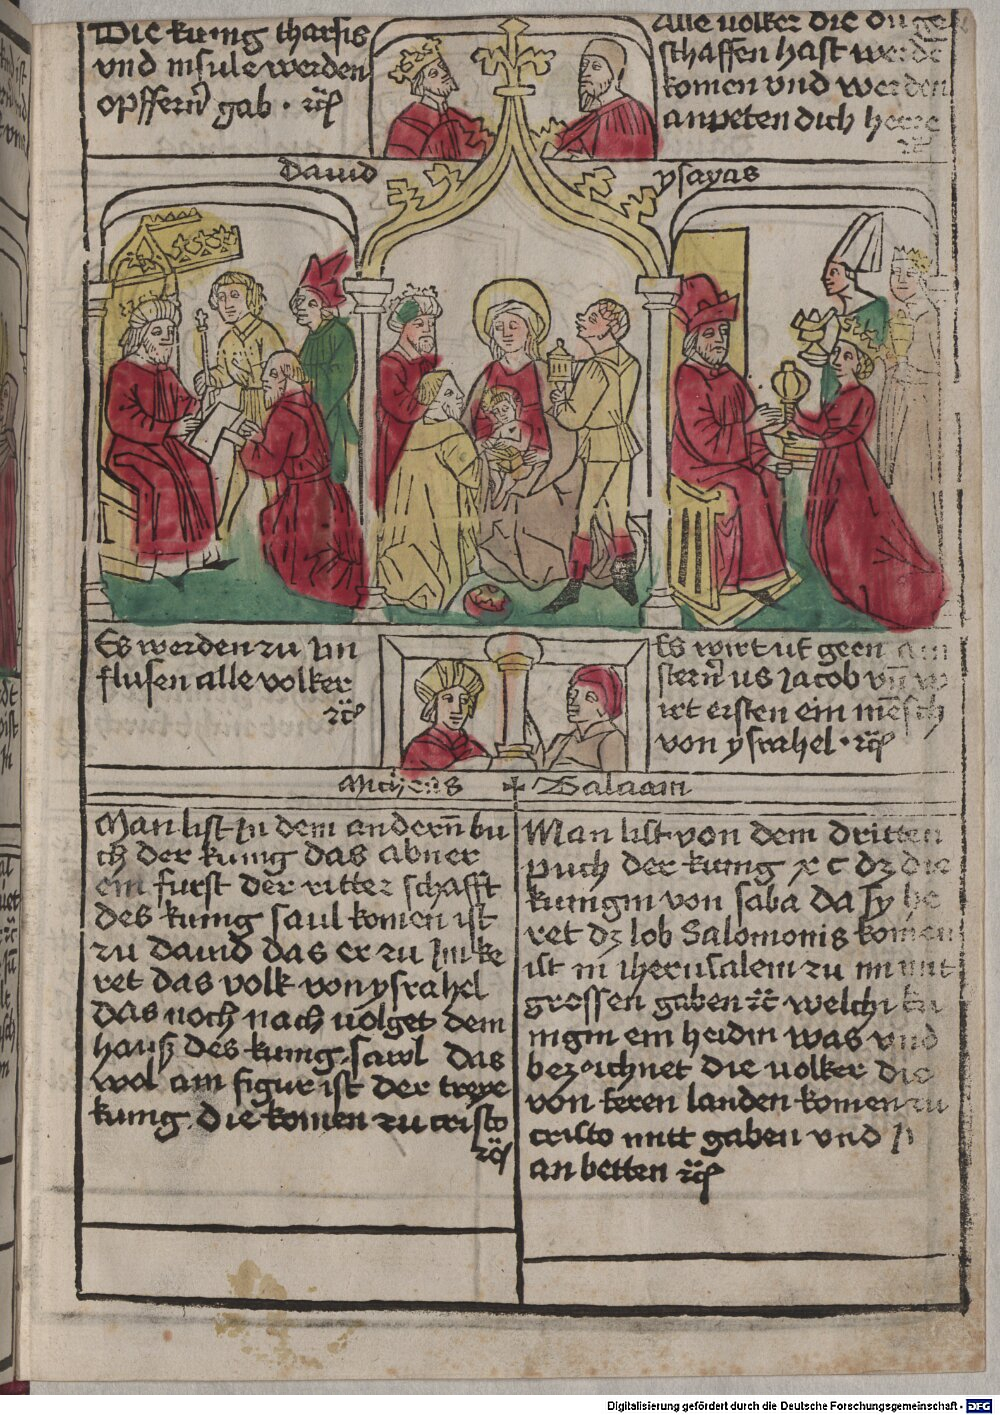 Die kunig tharsis
vnd insule werden
opffern gab · ⁊c̃
Alle volker die du ge
schaffen hast werde
komen vnd werden
anpeten dich herre
⁊c̃
Dauid
ysayas
Es werden zu Im
flusen alle volker
⁊c̃
Es wirt uf geen ain
stern̄ us Jacob vn̄ w
irt ersten ein mẽsch
von ysrahel · ⁊c̃
Micheas
Balaam
Man list In dem andern̄ bu
ch der kunig das abner
ein furst der ritter schafft
des kunig saul komen ist
zu dauid das er zu Im ke
ret das volk von ysrahel
das noch nach uolget dem
hauß des kunig sawl das
wol ain figur ist der treye
kunig die komen zu cristo
⁊c̃
Man list von dem dritten
puch der kunig x c dz die
kungin von saba da sy he
ret dz lob Salomonis komen
ist in iherusalem zu im mit
grossen gaben ⁊c̃ welchi ku
ngin ein heidin was vnd
bezeichnet die uolker die
von feren landen komen zu
cristo mitt gaben vnd In
an betten ⁊c̃
Digitalisierung gefördert durch die Deutsche Forschungsgemeinschaft - DFG